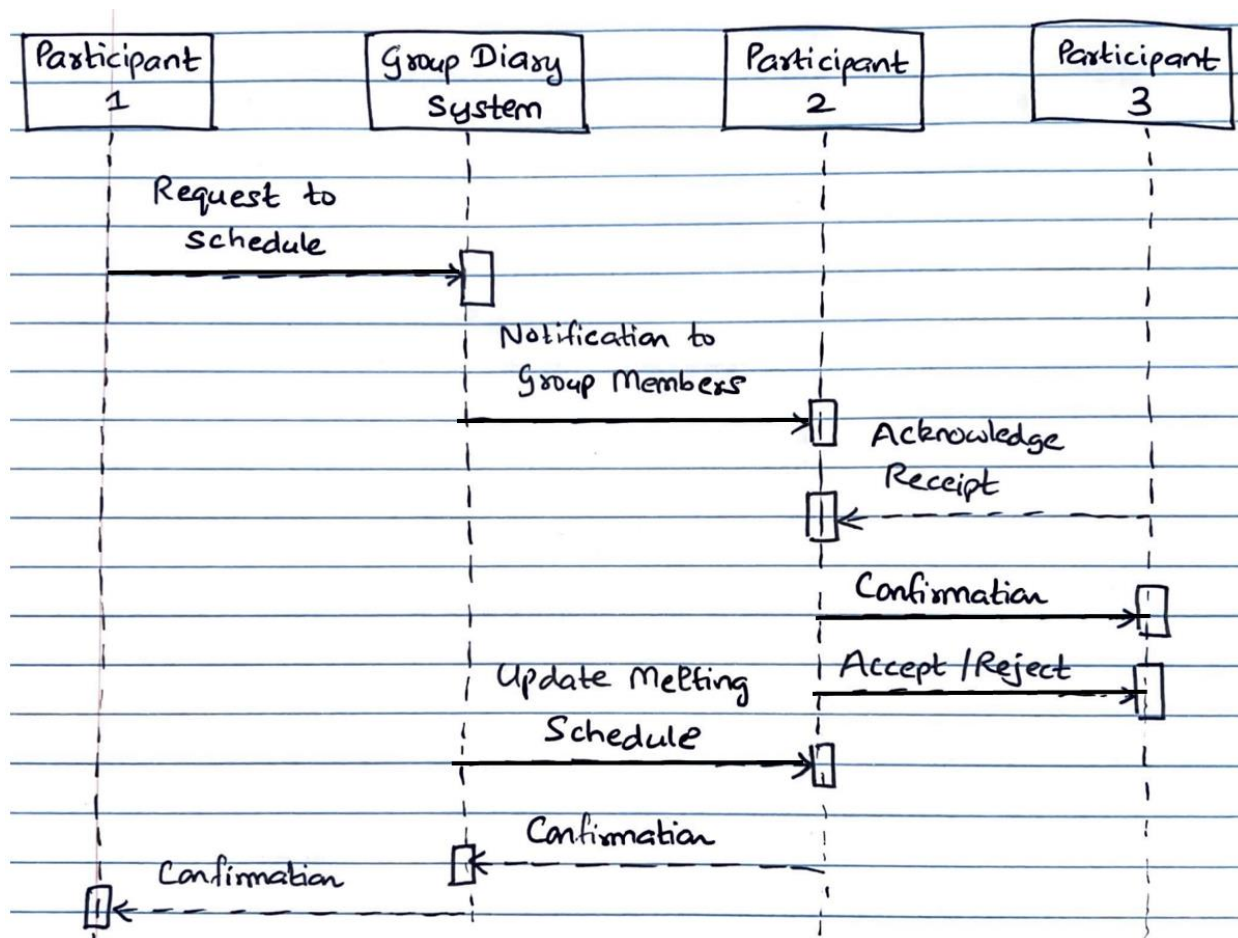 Participant
1
Group Diary
System
Participant
2
Participant
3
Request to
Schedule
Notification to
Group Members
Acknowledge
Receipt
Confirmation
Accept / Reject
Update Melting
Schedule
Confirmation
Confirmation